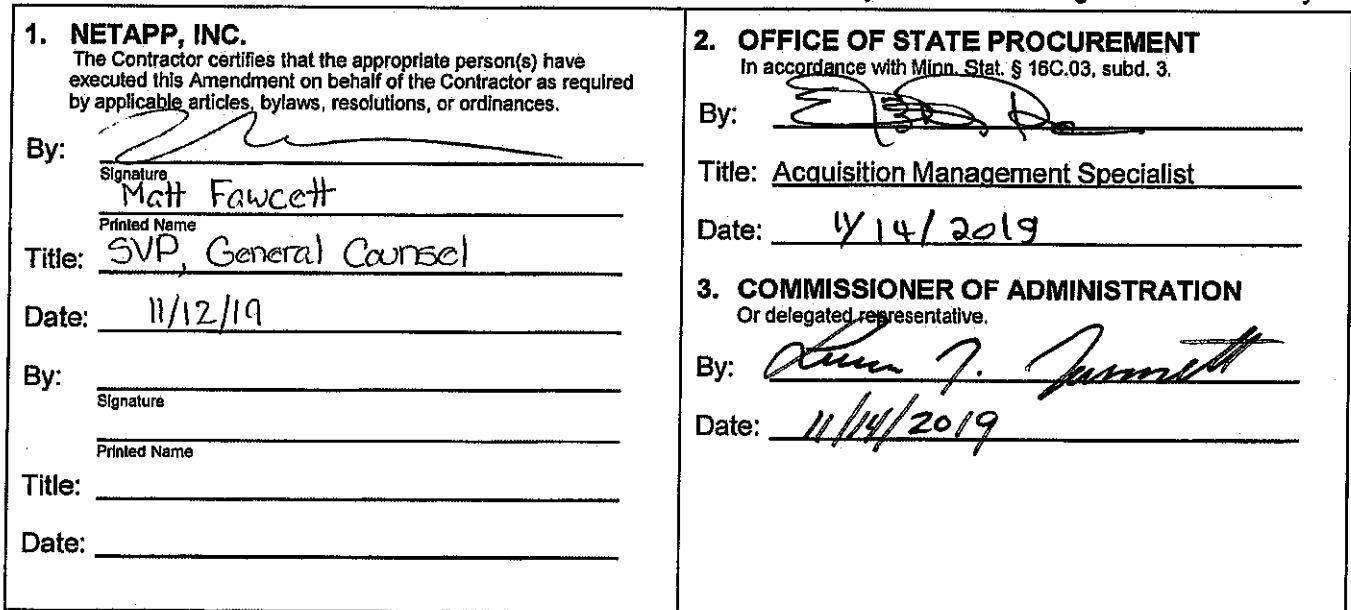 1. NETAPP, INC.
The Contractor certifies that the appropriate person(s) have
executed this Amendment on behalf of the Contractor as required
by applicable articles, bylaws, resolutions, or ordinances.
By:
Signature
Matt Fawcett
Printed Name
Title: SVP, General Counsel
Date: 11/12/19
By:
Signature
Printed Name
Title:
Date:
2. OFFICE OF STATE PROCUREMENT
In accordance with Minn. Stat. § 16C.03, subd. 3.
By:
Title: Acquisition Management Specialist
Date: 11/14/2019
3. COMMISSIONER OF ADMINISTRATION
Or delegated representative.
By:
Date: 11/14/2019